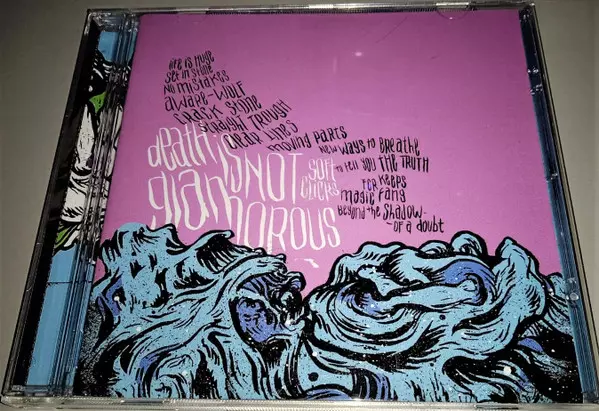 Life is Huge
Set in Stone
No Mistakes
Aware-Wolf
Crack Stone
Straight Trough
Clear Lines
Moving Parts
New Ways to Breathe
To Tell You The Truth
For Keeps
Magic Fang
Beyond the Shadow-
-of a doubt
death is
NOT
glam
MOROUS
Soft
Clicks